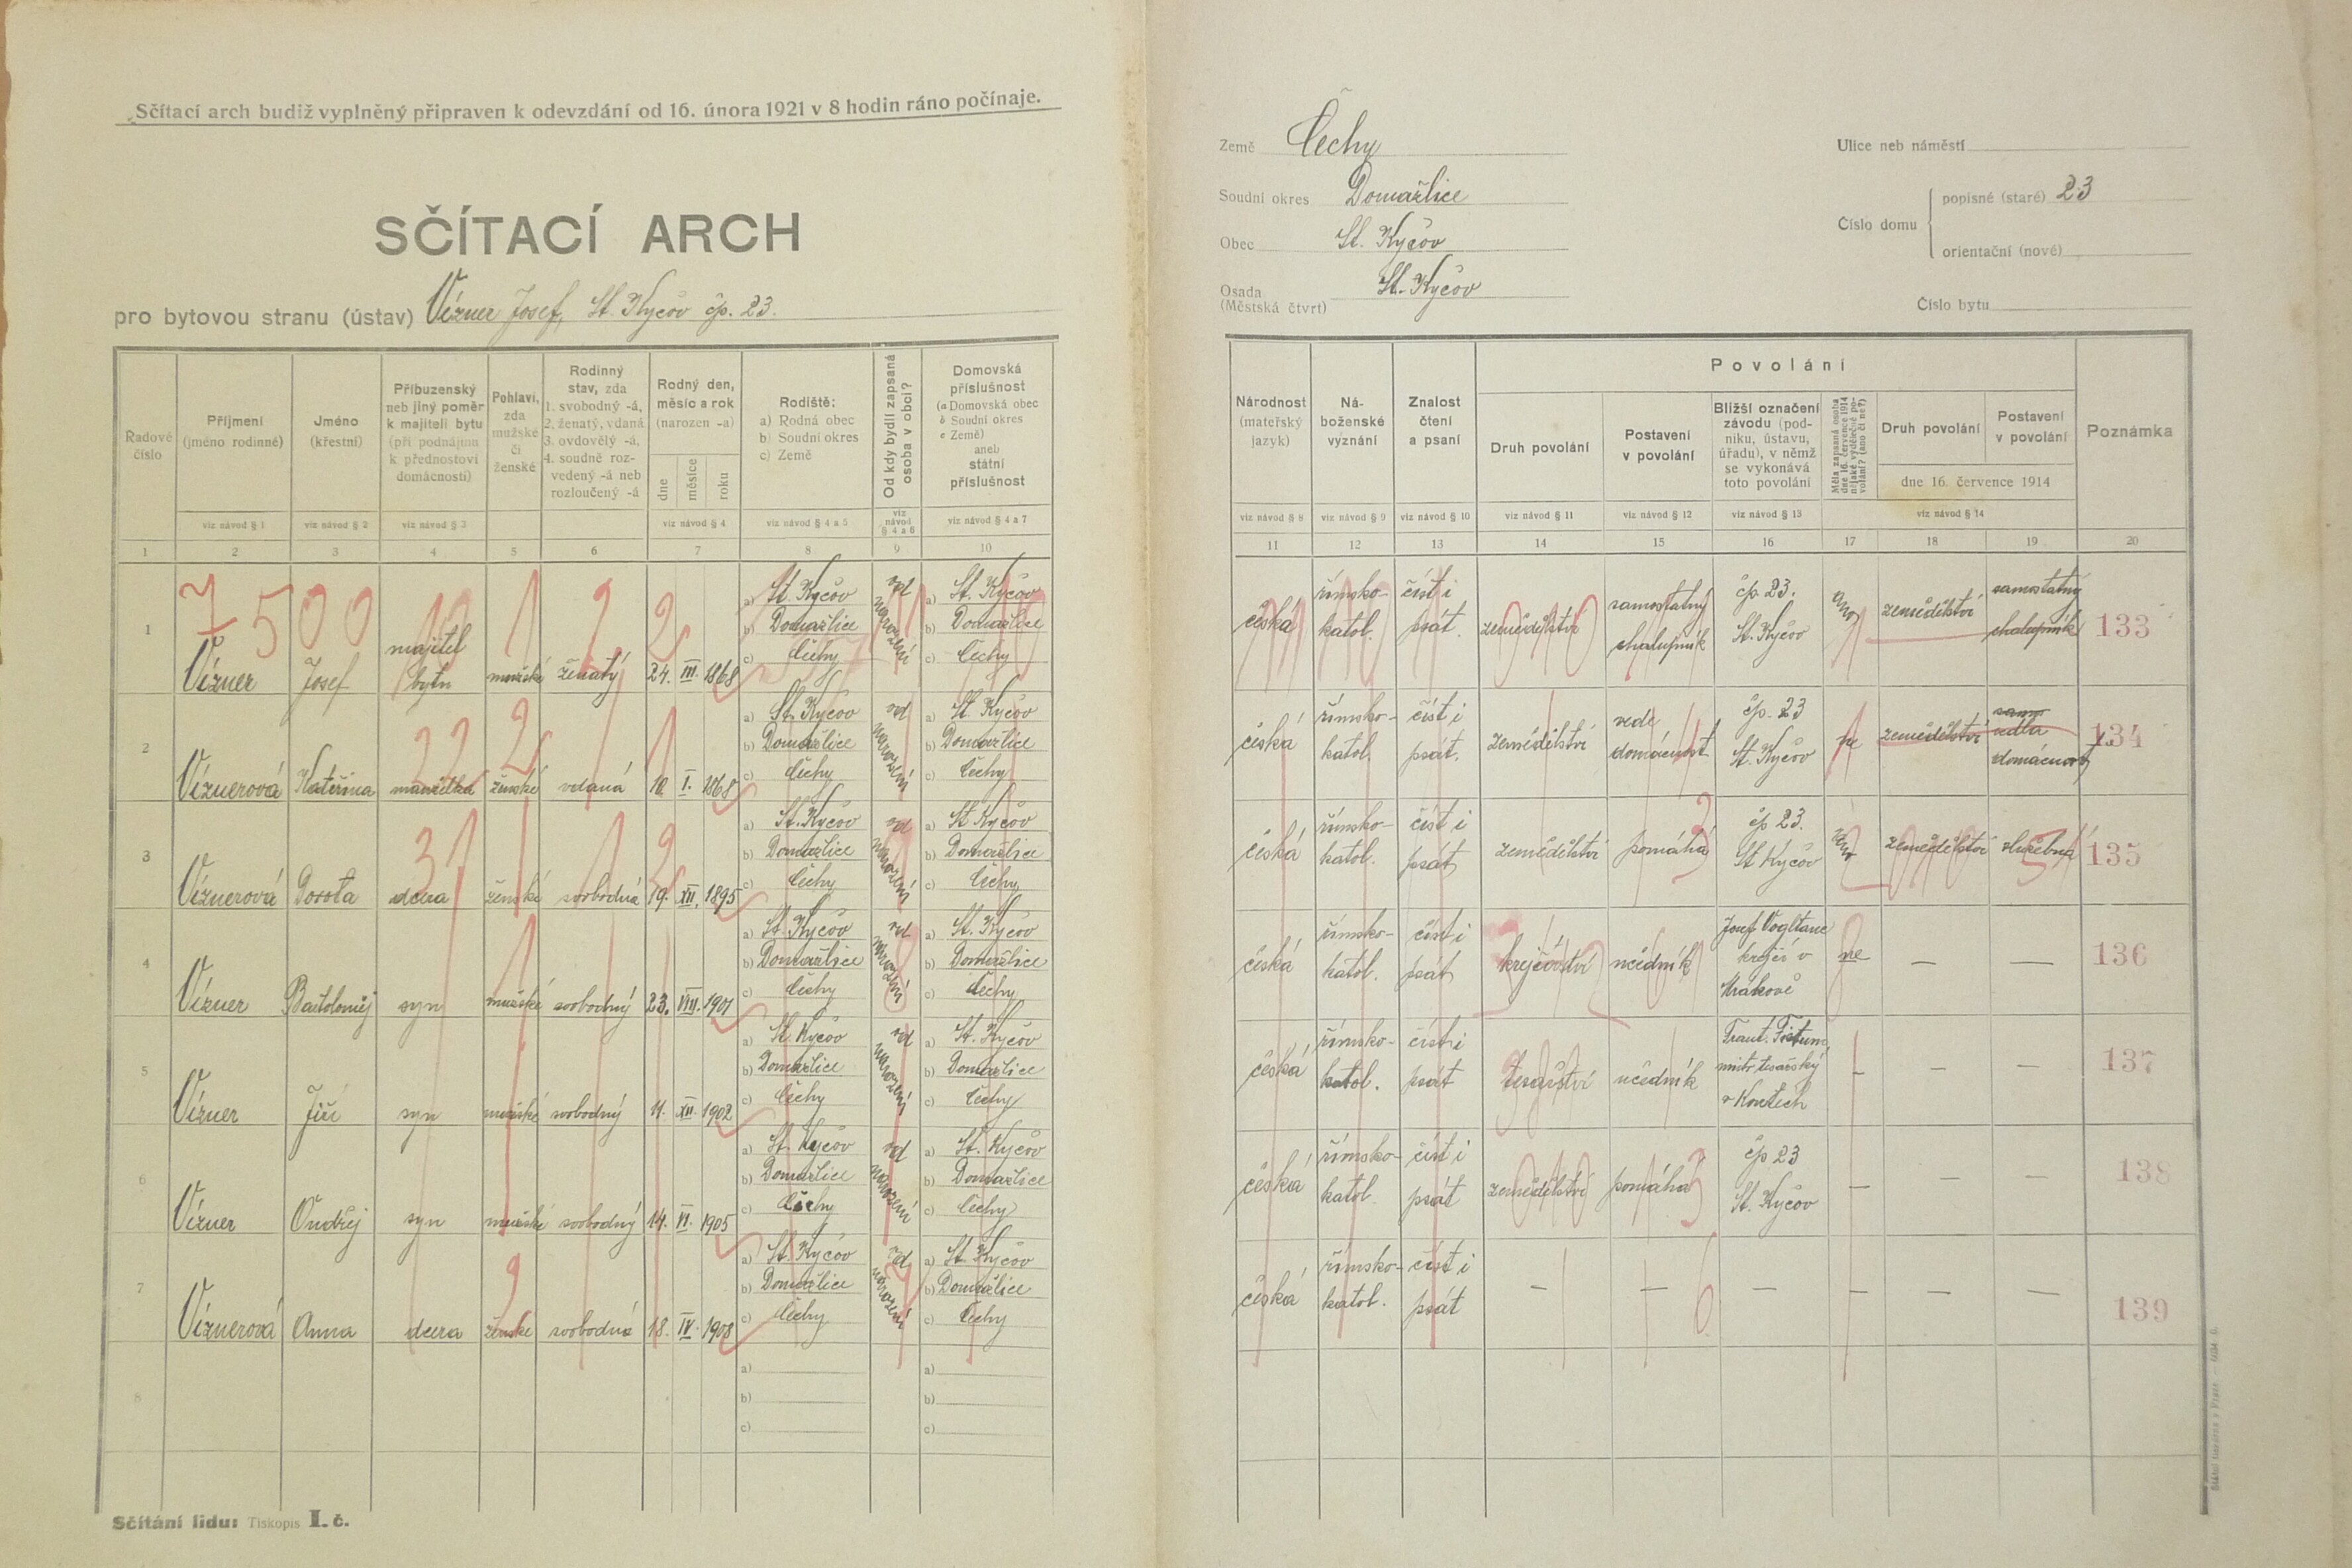 Sčítací arch budiž vyplněný připraven k odevzdání od 16. února 1921 v 8 hodin ráno počínaje.
SČÍTACÍ ARCH
pro bytovou stranu (ústav) Vízner Josef, St. Kyčov čp. 23.
Řadové číslo
Příjmení (jméno rodinné)
viz návod § 1
Jméno (křestní)
viz návod § 2
Příbuzenský neb jiný poměr k majiteli bytu (při podnájmu k přednostovi domácnosti)
viz návod § 3
Pohlaví, zda mužské či ženské
Rodinný stav, zda 1. svobodný -á, 2. ženatý, vdaná 3. ovdovělý -á, 4. soudně rozvedený -á neb rozloučený -á
Rodný den, měsíc a rok (narozen -a)
dne měsíce roku
viz návod § 4
Rodiště: a) Rodná obec b) Soudní okres c) Země
viz návod § 4 a 5
Od kdy bydlí zapsaná osoba v obci?
viz návod § 4 a 6
Domovská příslušnost (a Domovská obec b Soudní okres c Země) aneb státní příslušnost
viz návod § 4 a 7
1 2 3 4 5 6 7 8 9 10
7 5 0 0
1 Vízner Josef majitel bytu mužské ženatý 24. III. 1868 a) St. Kyčov b) Domažlice c) Čechy od narození a) St. Kyčov b) Domažlice c) Čechy
2 Víznerová Kateřina manželka ženské vdaná 10. I. 1868 a) St. Kyčov b) Domažlice c) Čechy od narození a) St. Kyčov b) Domažlice c) Čechy
3 Víznerová Dorota dcera ženské svobodná 19. XII. 1895 a) St. Kyčov b) Domažlice c) Čechy od narození a) St. Kyčov b) Domažlice c) Čechy
4 Vízner Bartoloměj syn mužské svobodný 23. VIII. 1901 a) St. Kyčov b) Domažlice c) Čechy od narození a) St. Kyčov b) Domažlice c) Čechy
5 Vízner Jiří syn mužské svobodný 11. XII. 1902 a) St. Kyčov b) Domažlice c) Čechy od narození a) St. Kyčov b) Domažlice c) Čechy
6 Vízner Ondřej syn mužské svobodný 14. VI. 1905 a) St. Kyčov b) Domažlice c) Čechy od narození a) St. Kyčov b) Domažlice c) Čechy
7 Víznerová Anna dcera ženské svobodná 18. IV. 1908 a) St. Kyčov b) Domažlice c) Čechy od narození a) St. Kyčov b) Domažlice c) Čechy
8 a) b) c) a) b) c)
Sčítání lidu: Tiskopis I. č.
Země Čechy
Soudní okres Domažlice
Obec St. Kyčov
Osada (Městská čtvrť) St. Kyčov
Ulice neb náměstí
Číslo domu
popisné (staré) 23
orientační (nové)
Číslo bytu
Národnost (mateřský jazyk)
viz návod § 8
Náboženské vyznání
viz návod § 9
Znalost čtení a psaní
viz návod § 10
Povolání
Druh povolání
viz návod § 11
Postavení v povolání
viz návod § 12
Bližší označení závodu (podniku, ústavu, úřadu), v němž se vykonává toto povolání
viz návod § 13
Měla zapsaná osoba dne 16. července 1914 nějaké výdělečné povolání? (ano či ne?)
Druh povolání
Postavení v povolání
dne 16. července 1914
viz návod § 14
Poznámka
11 12 13 14 15 16 17 18 19 20
česká římsko-katol. číst i psát. zemědělství samostatný chalupník čp. 23. St. Kyčov ano zemědělství samostatný chalupník 133
česká římsko-katol. číst i psát. zemědělství vede domácnost čp. 23 St. Kyčov ne zemědělství vedla domácnost 134
česká římsko-katol. číst i psát zemědělství pomáhá čp 23. St. Kyčov ano zemědělství služebná 135
česká římsko-katol. číst i psát krejčovství učedník Josef krejčí v Mrákově ne — — 136
česká římsko-katol. číst i psát tesařství učedník mistr tesařský v Koutech — — — 137
česká římsko-katol. číst i psát zemědělství pomáhá čp 23 St. Kyčov — — — 138
česká římsko-katol. číst i psát — — — — — — 139